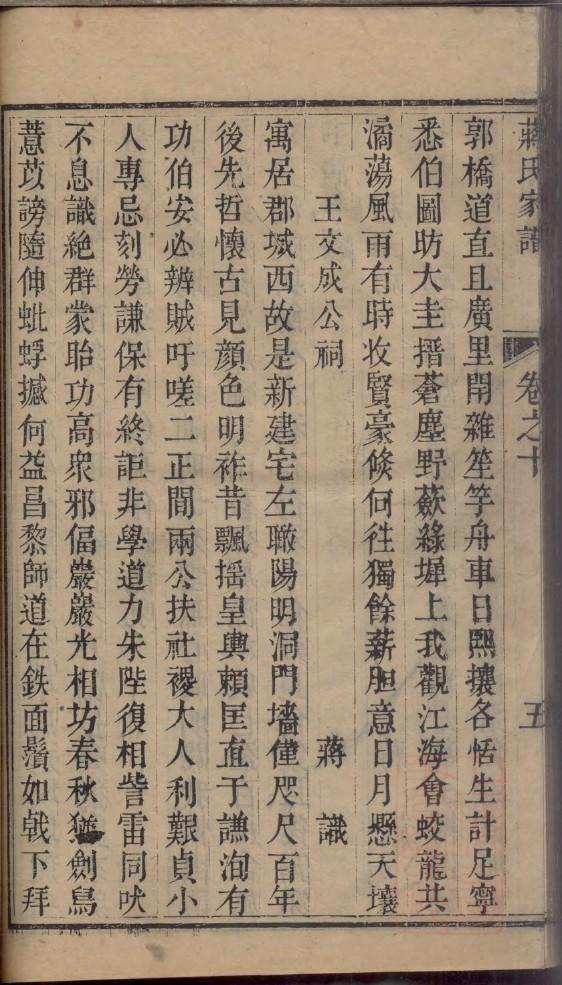 蔣氏家譜 卷之十 五
郭橋道直且廣里閈雜笙竽舟車日熙攘各恬生計足寧
悉伯圖昉大圭搢蒼塵野蔌綠墀上我觀江海會蛟龍共
潏蕩風雨有時收賢豪倏何往獨餘薪胆意日月懸天壤
王文成公祠 蔣識
寓居郡城西故是新建宅左瞰陽明洞門墻僅咫尺百年
後先哲懷古見顔色明祚昔飄摇皇輿頼匡直于譙洵有
功伯安必辨賊吁嗟二正間兩公扶社稷大人利艱貞小
人專忌刻勞謙保有終詎非學道力朱陛復相訾雷同吠
不息識絶群蒙眙功高衆邪偪巖巖光相坊春秋猶劍舄
薏苡謗隨伸蚍蜉撼何益昌黎師道在鉄面鬚如戟下拜